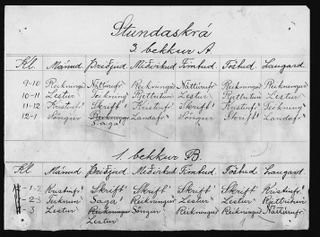 Stundaskrá
3. bekkur A
Kl. Mánud. Þriðjud. Miðvikud. Fimtud. Föstud. Laugard.
9-10 Reikningur Náttúrufr. Reikningur Náttúrufr. Reikningur Reikningur
10-11 Lestur Teikning Réttritun Lestur Réttritun Lestur
11-12 Kristinfr. Skrift Kristinfr. Skrift Kristinfr. Teikning
12-1 Söngur Reikningur Landafr. Söngur Skrift Landafr.
Saga
1. bekkur B
Kl. Mánud. Þriðjud. Miðvikud. Fimtud. Föstud. Laugard.
1-2 Kristinfr. Skrift Skrift Skrift Skrift Kristinfr.
2-3 Saga Reikningur Lestur Lestur Réttritun
3 Lestur Reikningur Söngur Reikningur Reikningur Náttúrufr.
Lestur